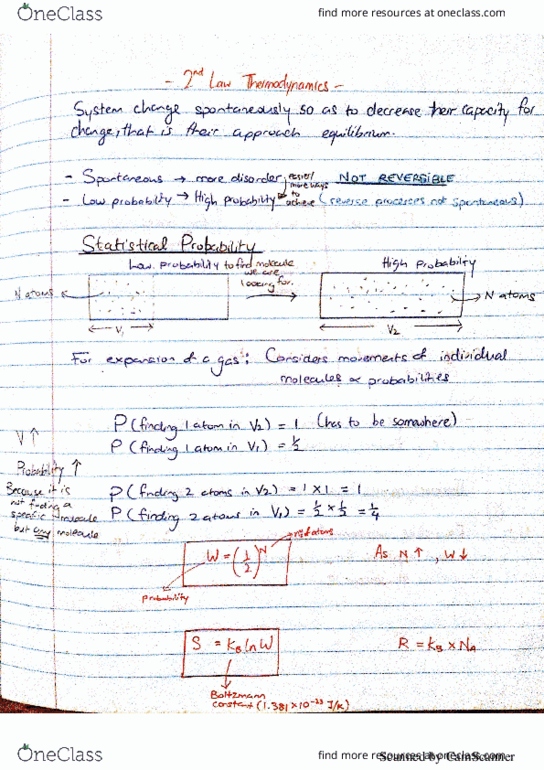 OneClass
find more resources at oneclass.com
- 2nd Law Thermodynamics -
System change spontaneously so as to decrease their capacity for
change, that is their approach equilibrium.
- Spontaneous → more disorder easier/ more ways to achieve NOT REVERSIBLE
- Low probability → High probability (reverse processes not spontaneous)
Statistical Probability
Low probability to find molecule we are looking for.
High probability
N atoms
N atoms
V1
V2
For expansion of a gas: Considers movements of individual
molecules ∝ probabilities
P (finding 1 atom in V2) = 1 (has to be somewhere)
P (finding 1 atom in V1) = 1/2
V ↑
Probability ↑
Because it is
not finding a
specific molecule
but any molecule
P (finding 2 atoms in V2) = 1 × 1 = 1
P (finding 2 atoms in V1) = 1/2 × 1/2 = 1/4
W = (1/2)^N
probability
As N ↑, W ↓
S = kB ln W
R = kB × NA
Boltzmann
constant (1.381 × 10^-23 J/K)
OneClass
find more resources at oneclass.com
Scanned by CamScanner